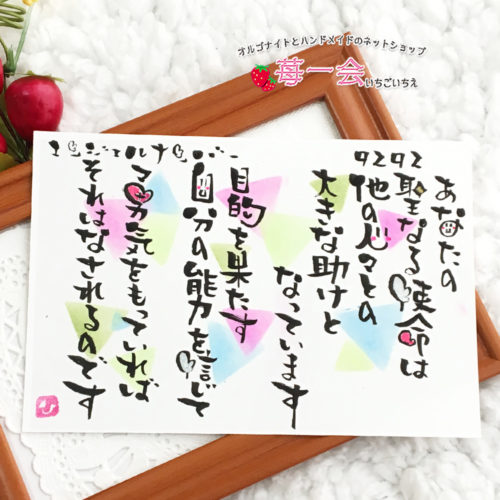 オルゴナイトとハンドメイドのネットショップ
苺一会いちごいちえ
エンジェルナンバー
9292
あなたの
聖なる使命は
他の人々との
大きな助けと
なっています
目的を果たす
自分の能力を信じて
勇気をもっていれば
それはなされるのです